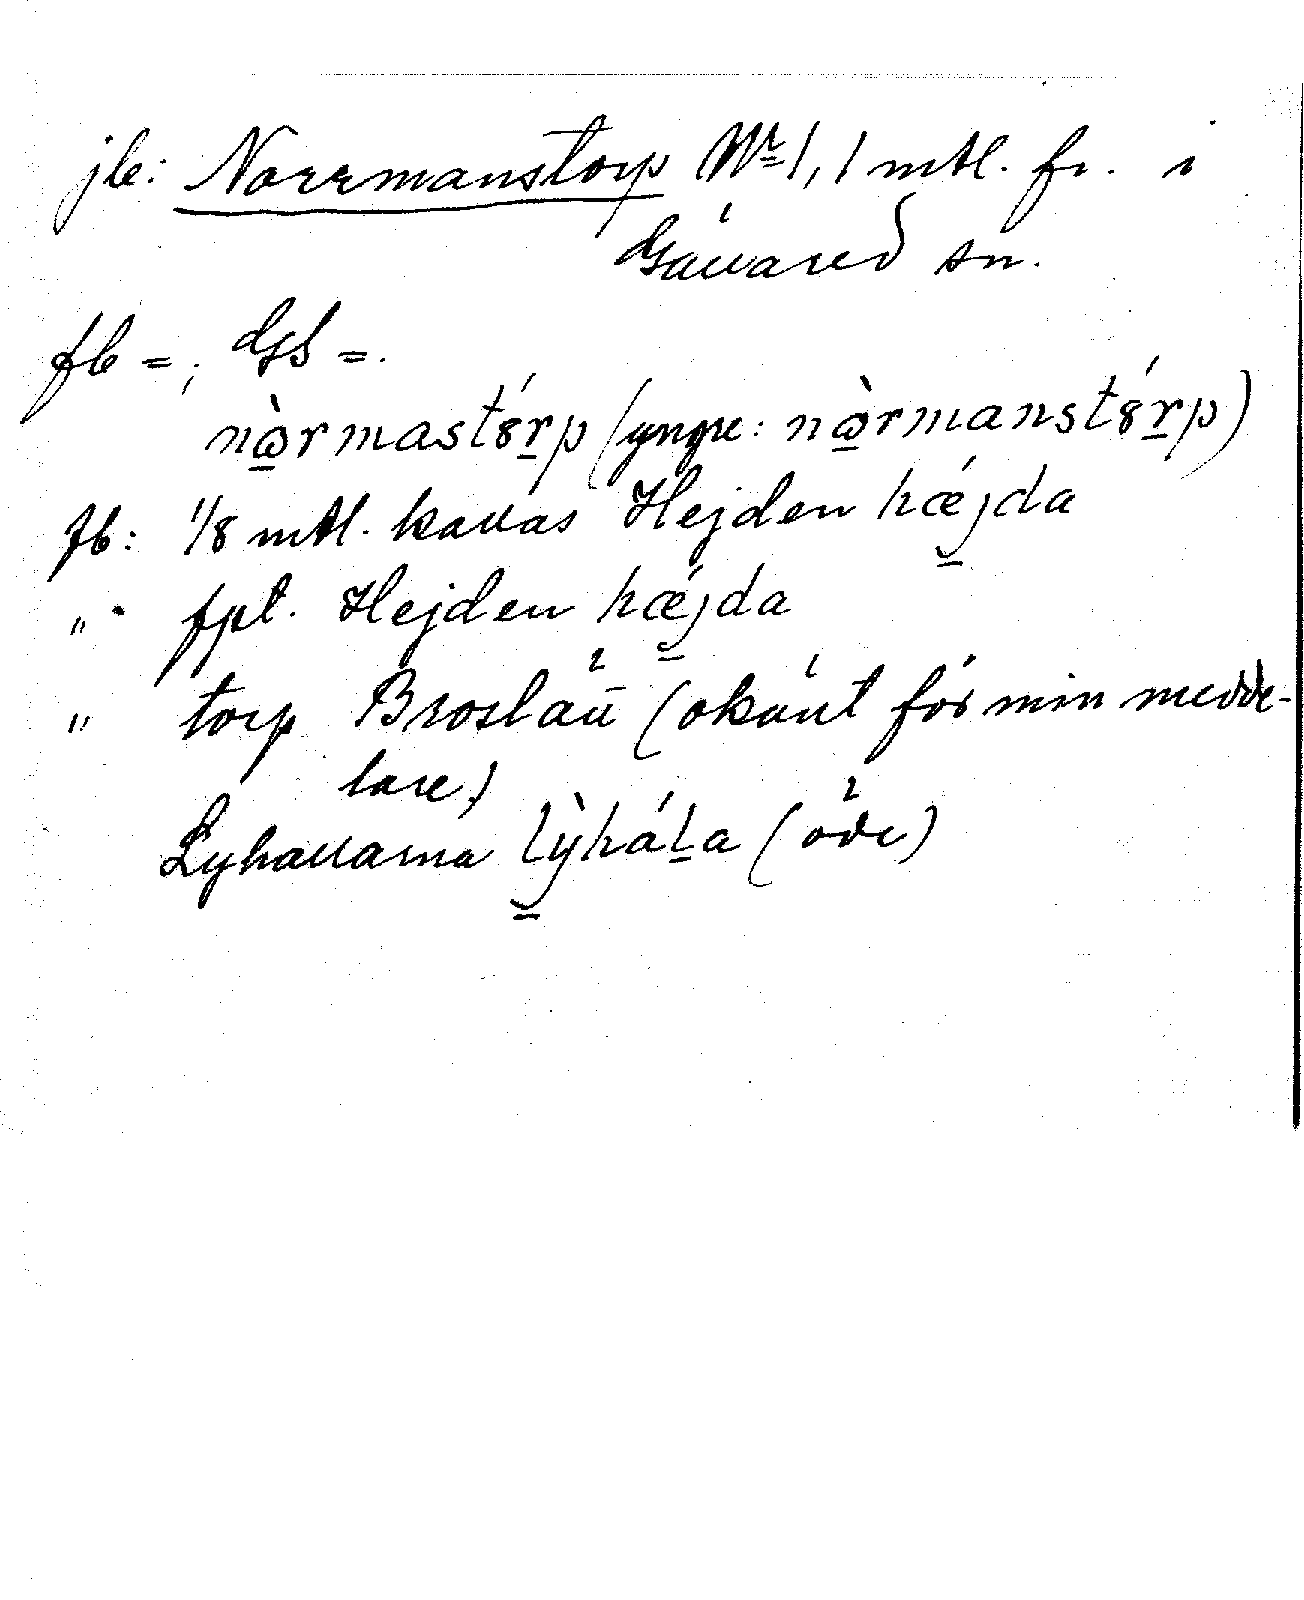 jb: Norrmanstorp Nr 1, 1 mtl. fr. i
Gällared sn.
fb =; GS =.
nòrmastórp (yngre: nòrmanstórp)
fb: 1/8 mtl. kallas Hejden hǽjda
" fpt. Hejden hǽjda
" torp Broslätt (okänt för min medde-
lare)
Lyhallarna lỳhála (öde)